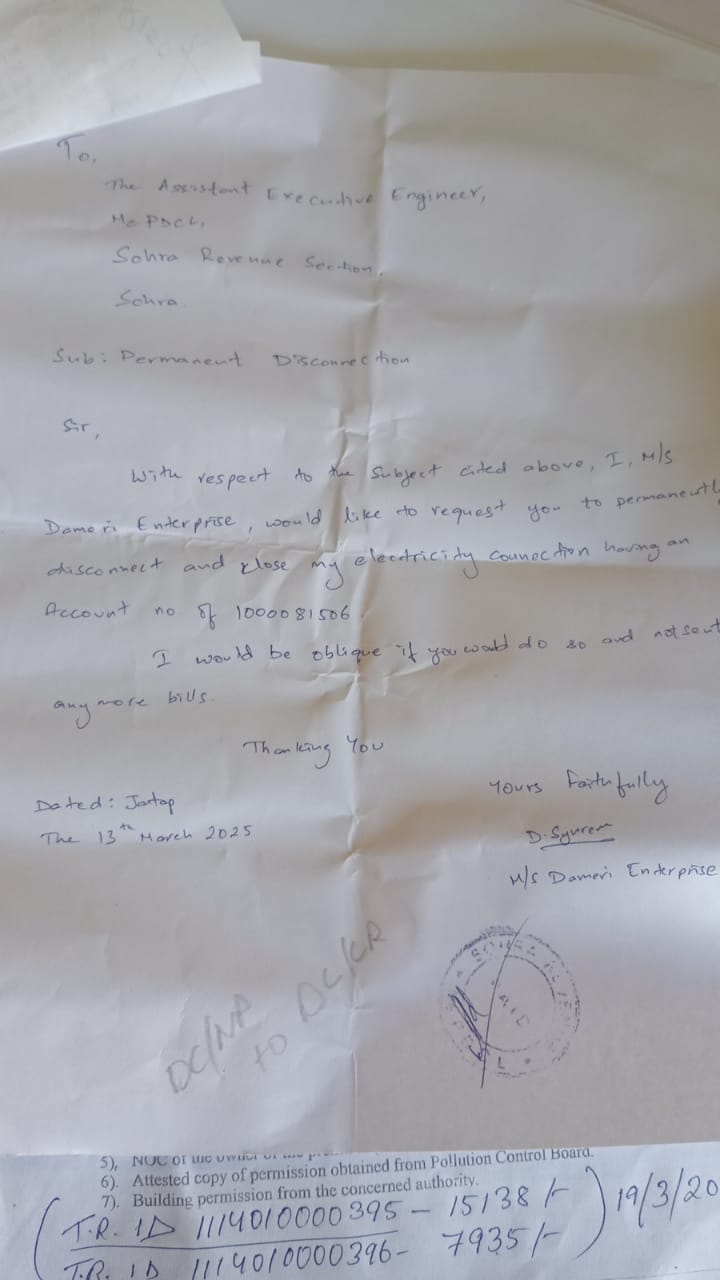 To,
The Assistant Executive Engineer,
Me PDCL,
Sohra Revenue Section,
Sohra.
Sub: Permanent Disconnection
Sir,
With respect to the Subject cited above, I, M/s
Dameri Enterprise, would like to request you to permanently
disconnect and close my electricity connection having an
Account no of 1000081506.
I would be oblique if you would do so and not sent
any more bills.
Thanking You
Yours Faithfully
Dated: Jartap
The 13th March 2025
D. Synrem
M/s Dameri Enterprise
DC/NP
to DC/CR
5), NOC of the owner of the
6). Attested copy of permission obtained from Pollution Control Board.
7). Building permission from the concerned authority.
(T.R. ID 1114010000395 - 15138/-) 19/3/20
T.R. ID 1114010000396 - 7935/-